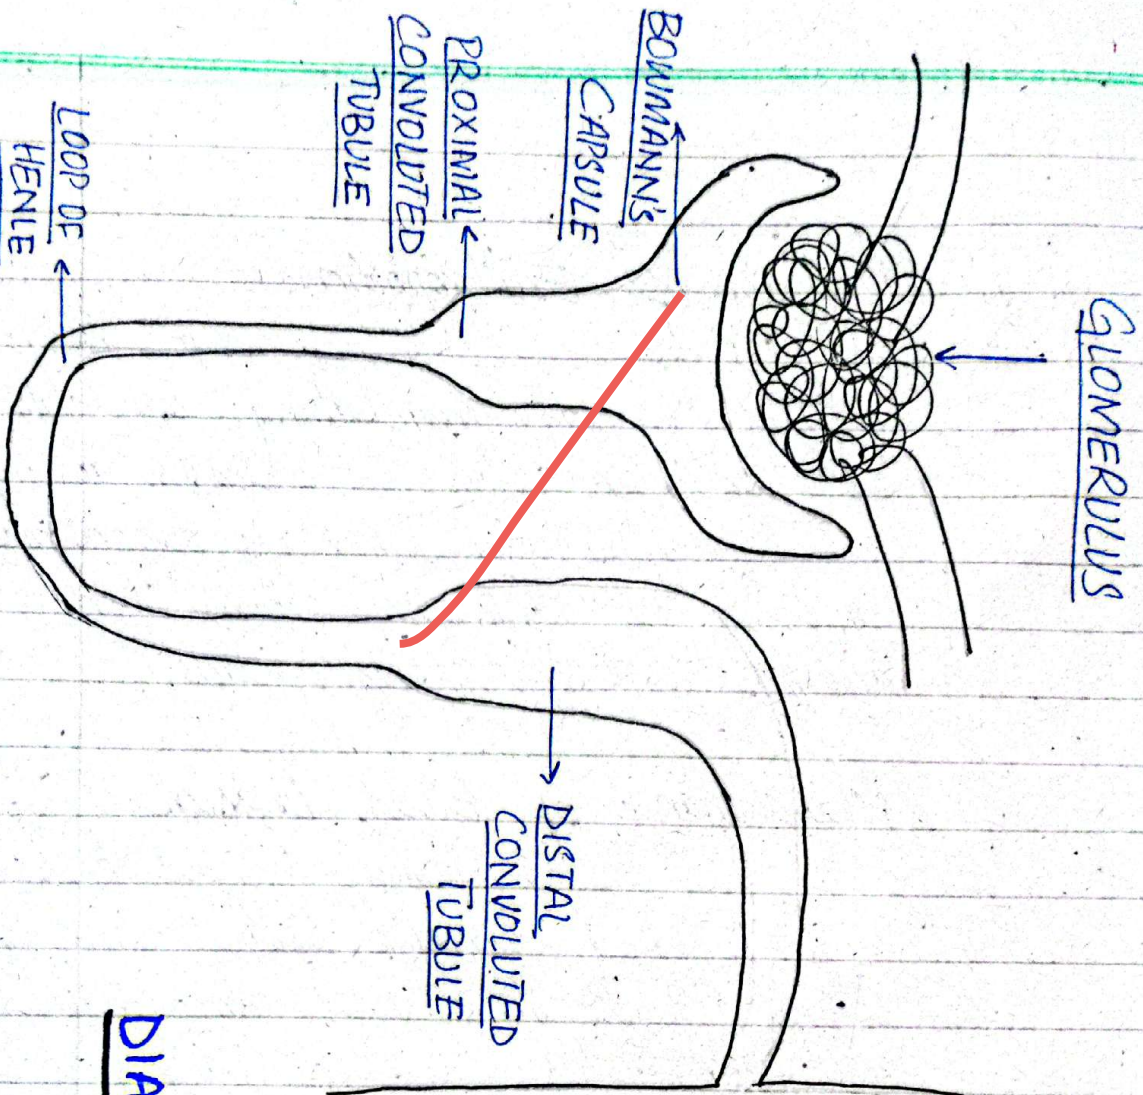 GLOMERULUS
BOWMANN's
CAPSULE
PROXIMAL
CONVOLUTED
TUBULE
LOOP OF
HENLE
DISTAL
CONVOLUTED
TUBULE
DIA